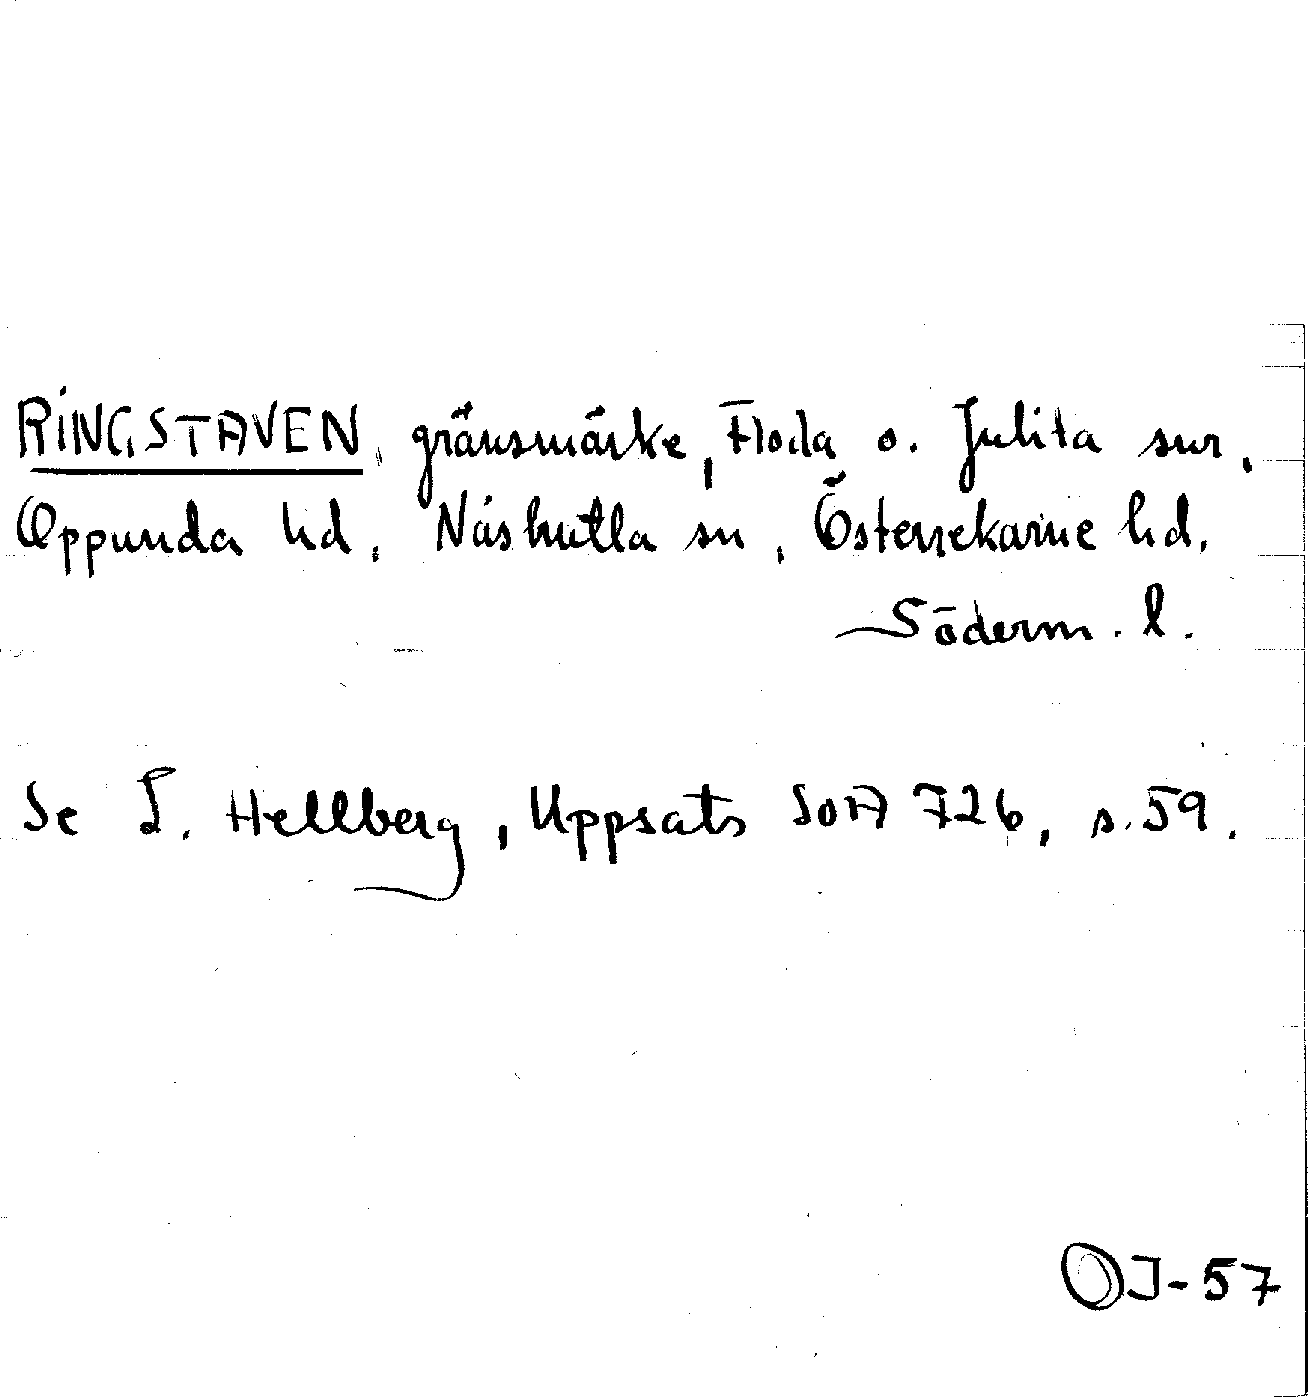 RINGSTAVEN, gränsmärke, Floda o. Julita snr,
Oppunda hd, Näshulta sn, Österrekarne hd.
Söderm. l.
Se L. Hellberg, Uppsats SOA 726, s. 59.
OJ-57